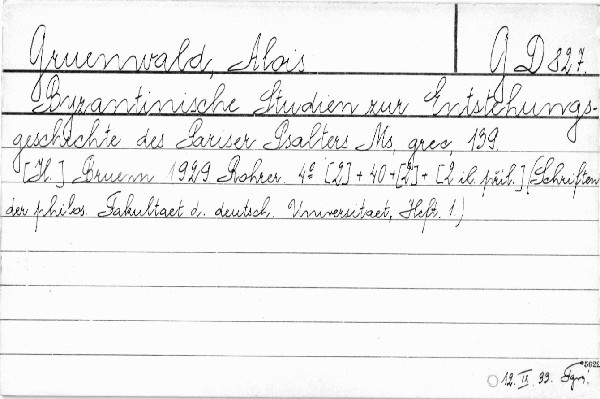 Gruenwald, Alois G D 827.
Byzantinische Studien zur Entstehungs-
geschichte des Pariser Psalters Ms. grec. 139.
[Il.] Bruenn 1929 Rohrer. 4° [2] + 40 + [2] + [2 il. příl.] (Schriften
der philos. Fakultaet d. deutsch. Universitaet, Heft. 1.)
12. II. 39.